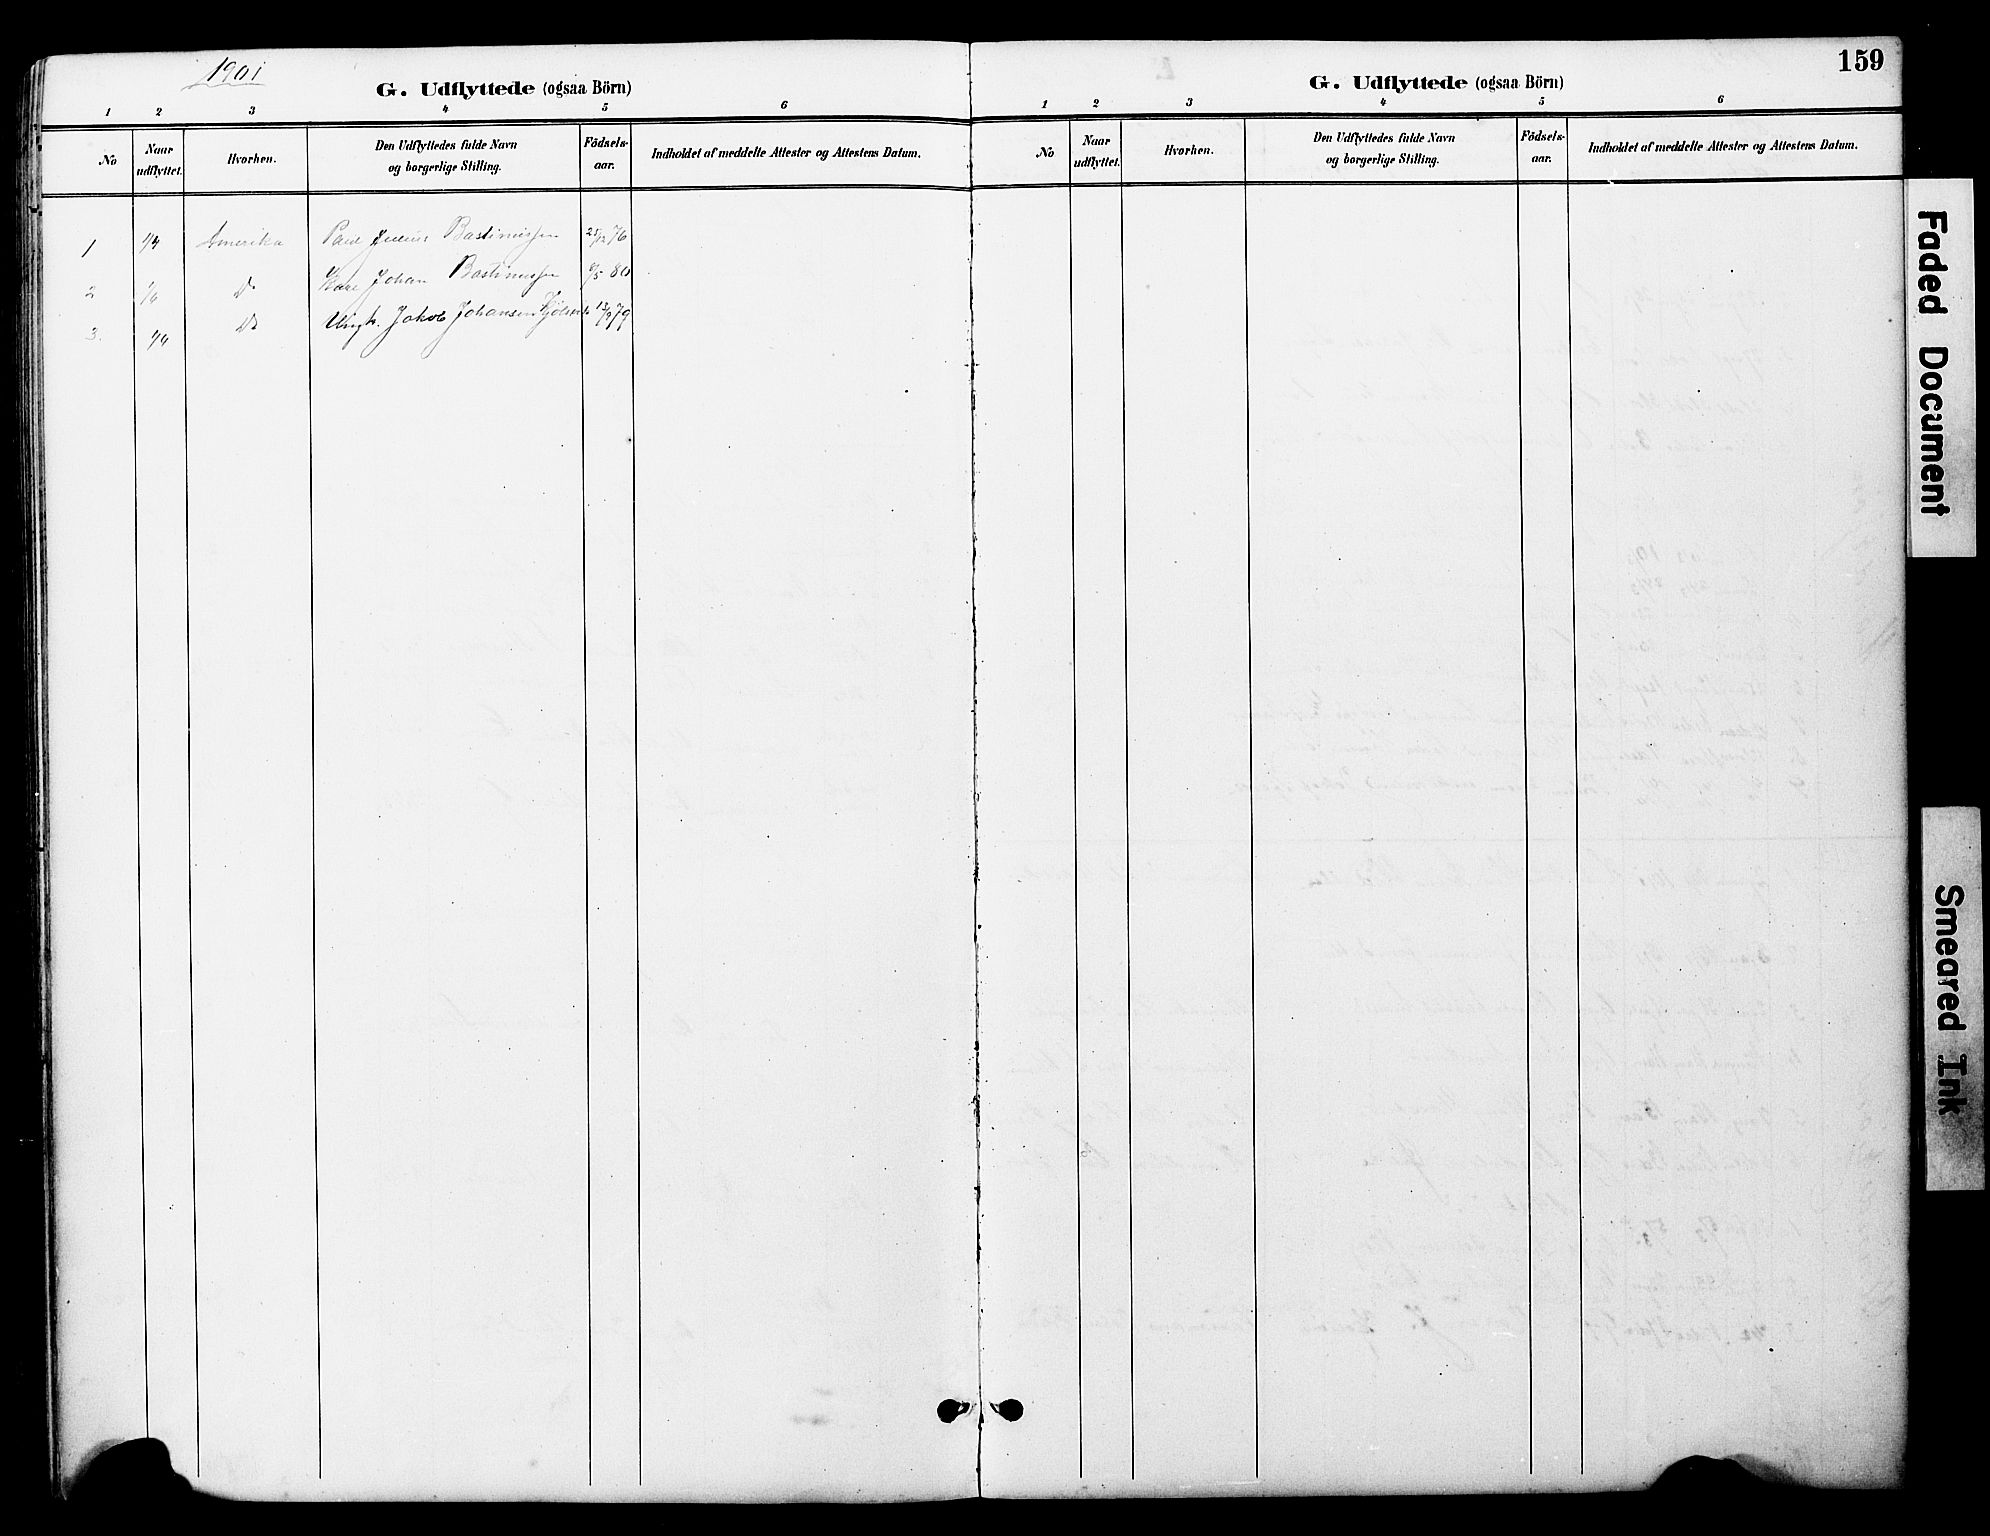 1901
G. Udflyttede (ogsaa Börn)
1 2 3 4 5 6
No
Naar udflyttet.
Hvorhen.
Den Udflyttedes fulde Navn og borgerlige Stilling.
Födsels-aar.
Indholdet af meddelte Attester og Attestens Datum.
1 1/4 Amerika Paul Julius Bastinussen 25/12 76
2 Do Karl Johan Bastinussen 6/5 80
3. Do Ungk. Jakob Johansen 13/9 79
159
G. Udflyttede (ogsaa Börn)
1 2 3 4 5 6
No
Naar udflyttet.
Hvorhen.
Den Udflyttedes fulde Navn og borgerlige Stilling.
Födsels-aar.
Indholdet af meddelte Attester og Attestens Datum.
Faded Document
Smeared Ink